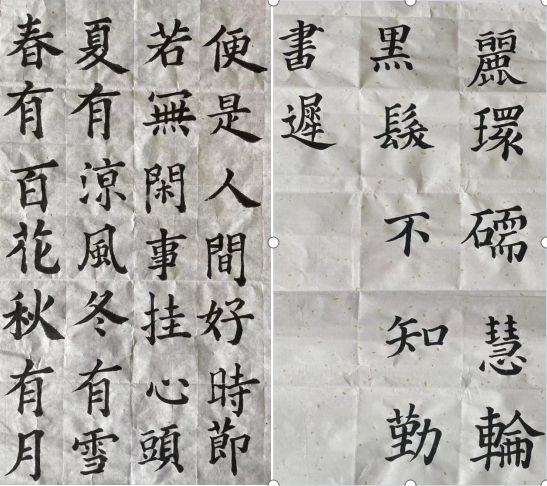 春有百花秋有月
夏有涼風冬有雪
若無閑事挂心頭
便是人間好時節
麗環礝慧輪
黒髮不知勤
書遲